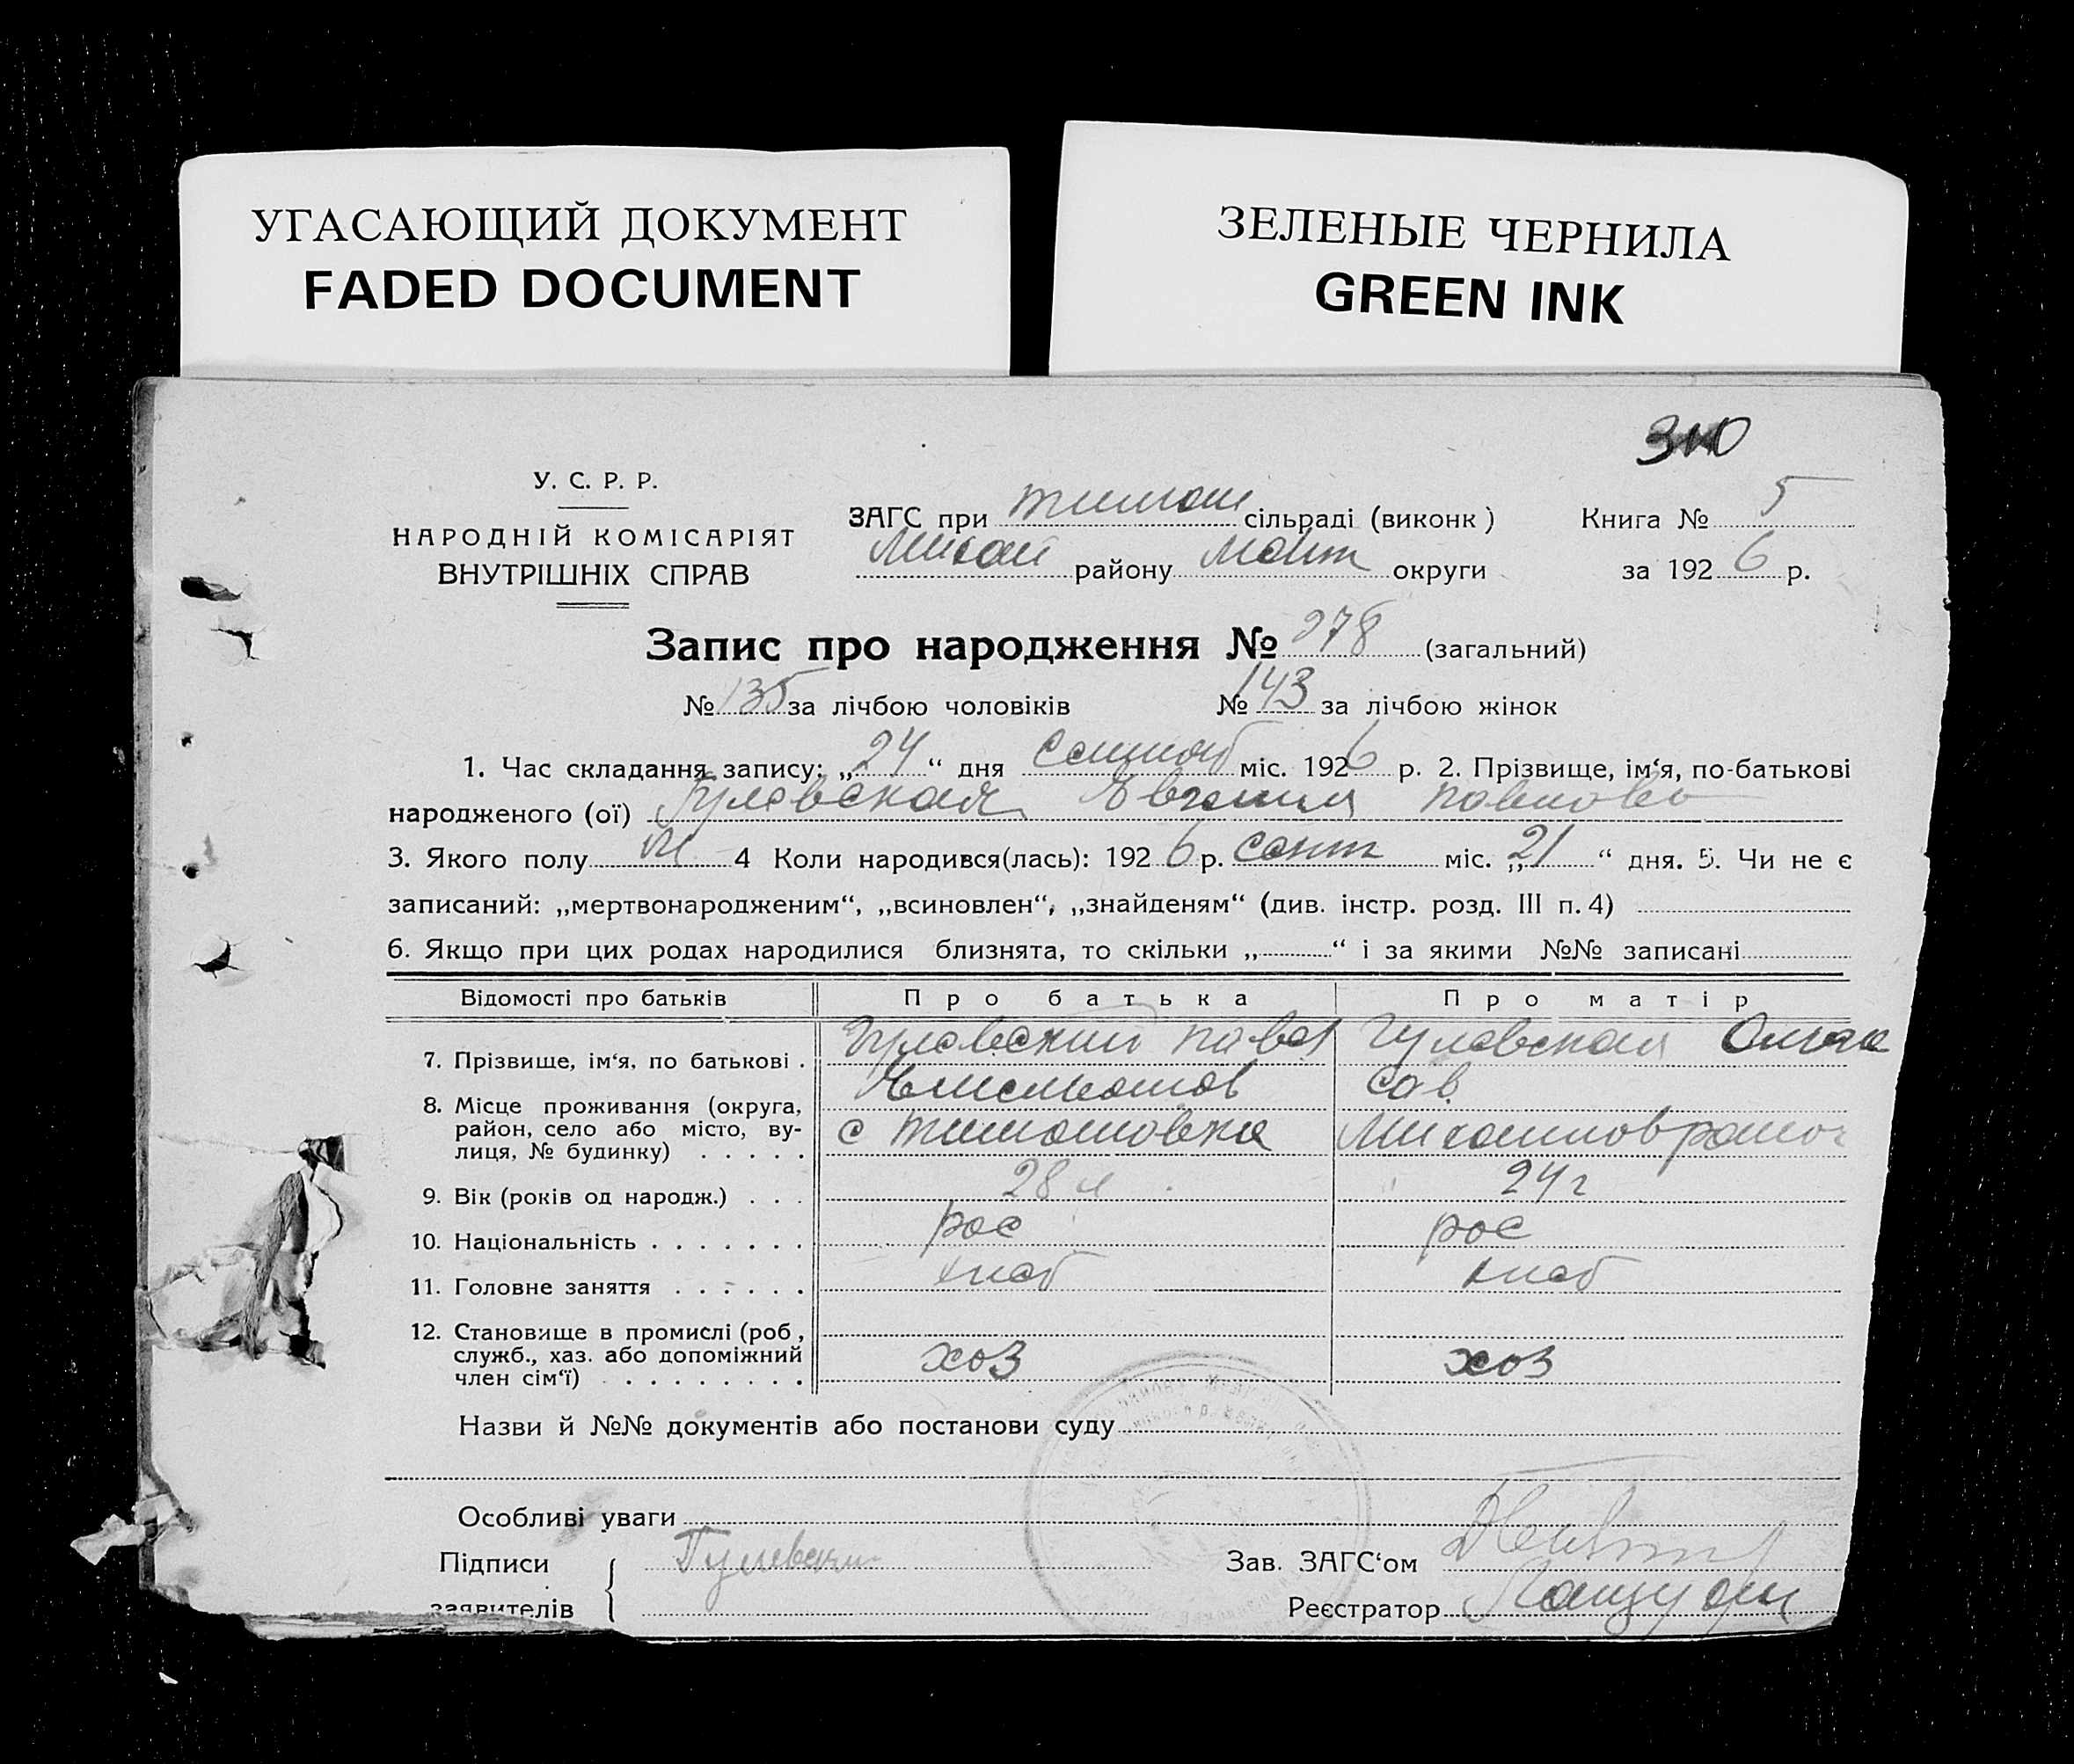 УГАСАЮЩИЙ ДОКУМЕНТ
FADED DOCUMENT
ЗЕЛЕНЫЕ ЧЕРНИЛА
GREEN INK
У. С. Р. Р.
НАРОДНІЙ КОМІСАРІЯТ
ВНУТРІШНІХ СПРАВ
ЗАГС при тимош сільраді (виконк)
Михай району Меліт округи
Книга № 5
за 1926 р.
Запис про народження № 278 (загальний)
№ 135 за лічбою чоловіків № 143 за лічбою жінок
1. Час складання запису: „24“ дня міс. 1926 р. 2. Прізвище, ім‘я, по-батькові
народженого (ої) Гулевская Евгения Павлова
3. Якого полу 4 Коли народився(лась): 1926 р. сент міс. „21“ дня. 5. Чи не є
записаний: „мертвонародженим“, „всиновлен“, „знайденям“ (див. інстр. розд. III п. 4)
6. Якщо при цих родах народилися близнята, то скільки „ “ і за якими №№ записані
Відомості про батьків Про батька Про матір
7. Прізвище, ім‘я, по батькові . Гулевский Павел Гулевская Ольга
Сав.
8. Місце проживання (округа,
район, село або місто, ву-
лиця, № будинку) . . . . . с Тимошовка
9. Вік (років од народж.) . . . 28 л 24 г
10. Національність . . . . . . . рос рос
11. Головне заняття . . . . . . хлеб хлеб
12. Становище в промислі (роб,
служб., хаз. або допоміжний
член сім‘ї) . . . . . . . . хоз хоз
Назви й №№ документів або постанови суду
Особливі уваги
Підписи Гулевски Зав. ЗАГС‘ом
заявителів Реєстратор